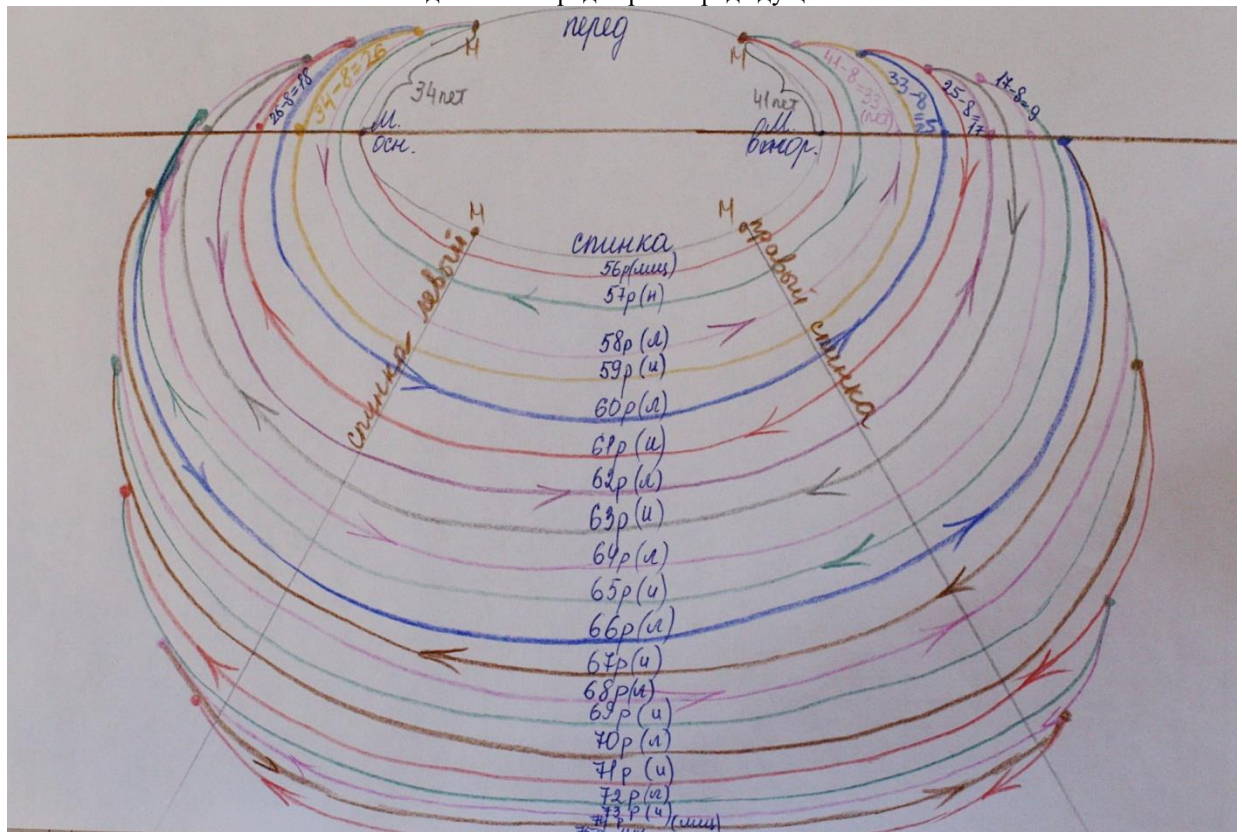 перед
М
М
34 пет
41 пет
26-8=18
34-8=26
41-8=33
33-8
25-8=17
17-8=9
М.
осн.
М.
М
М
спинка левый
правый спинка
спинка
56р(лиц)
57р(и)
58р(л)
59р(и)
60р(л)
61р(и)
62р(л)
63р(и)
64р(л)
65р(и)
66р(л)
67р(и)
68р(л)
69р(и)
70р(л)
71р(и)
72р(л)
73р(и)
(лиц)